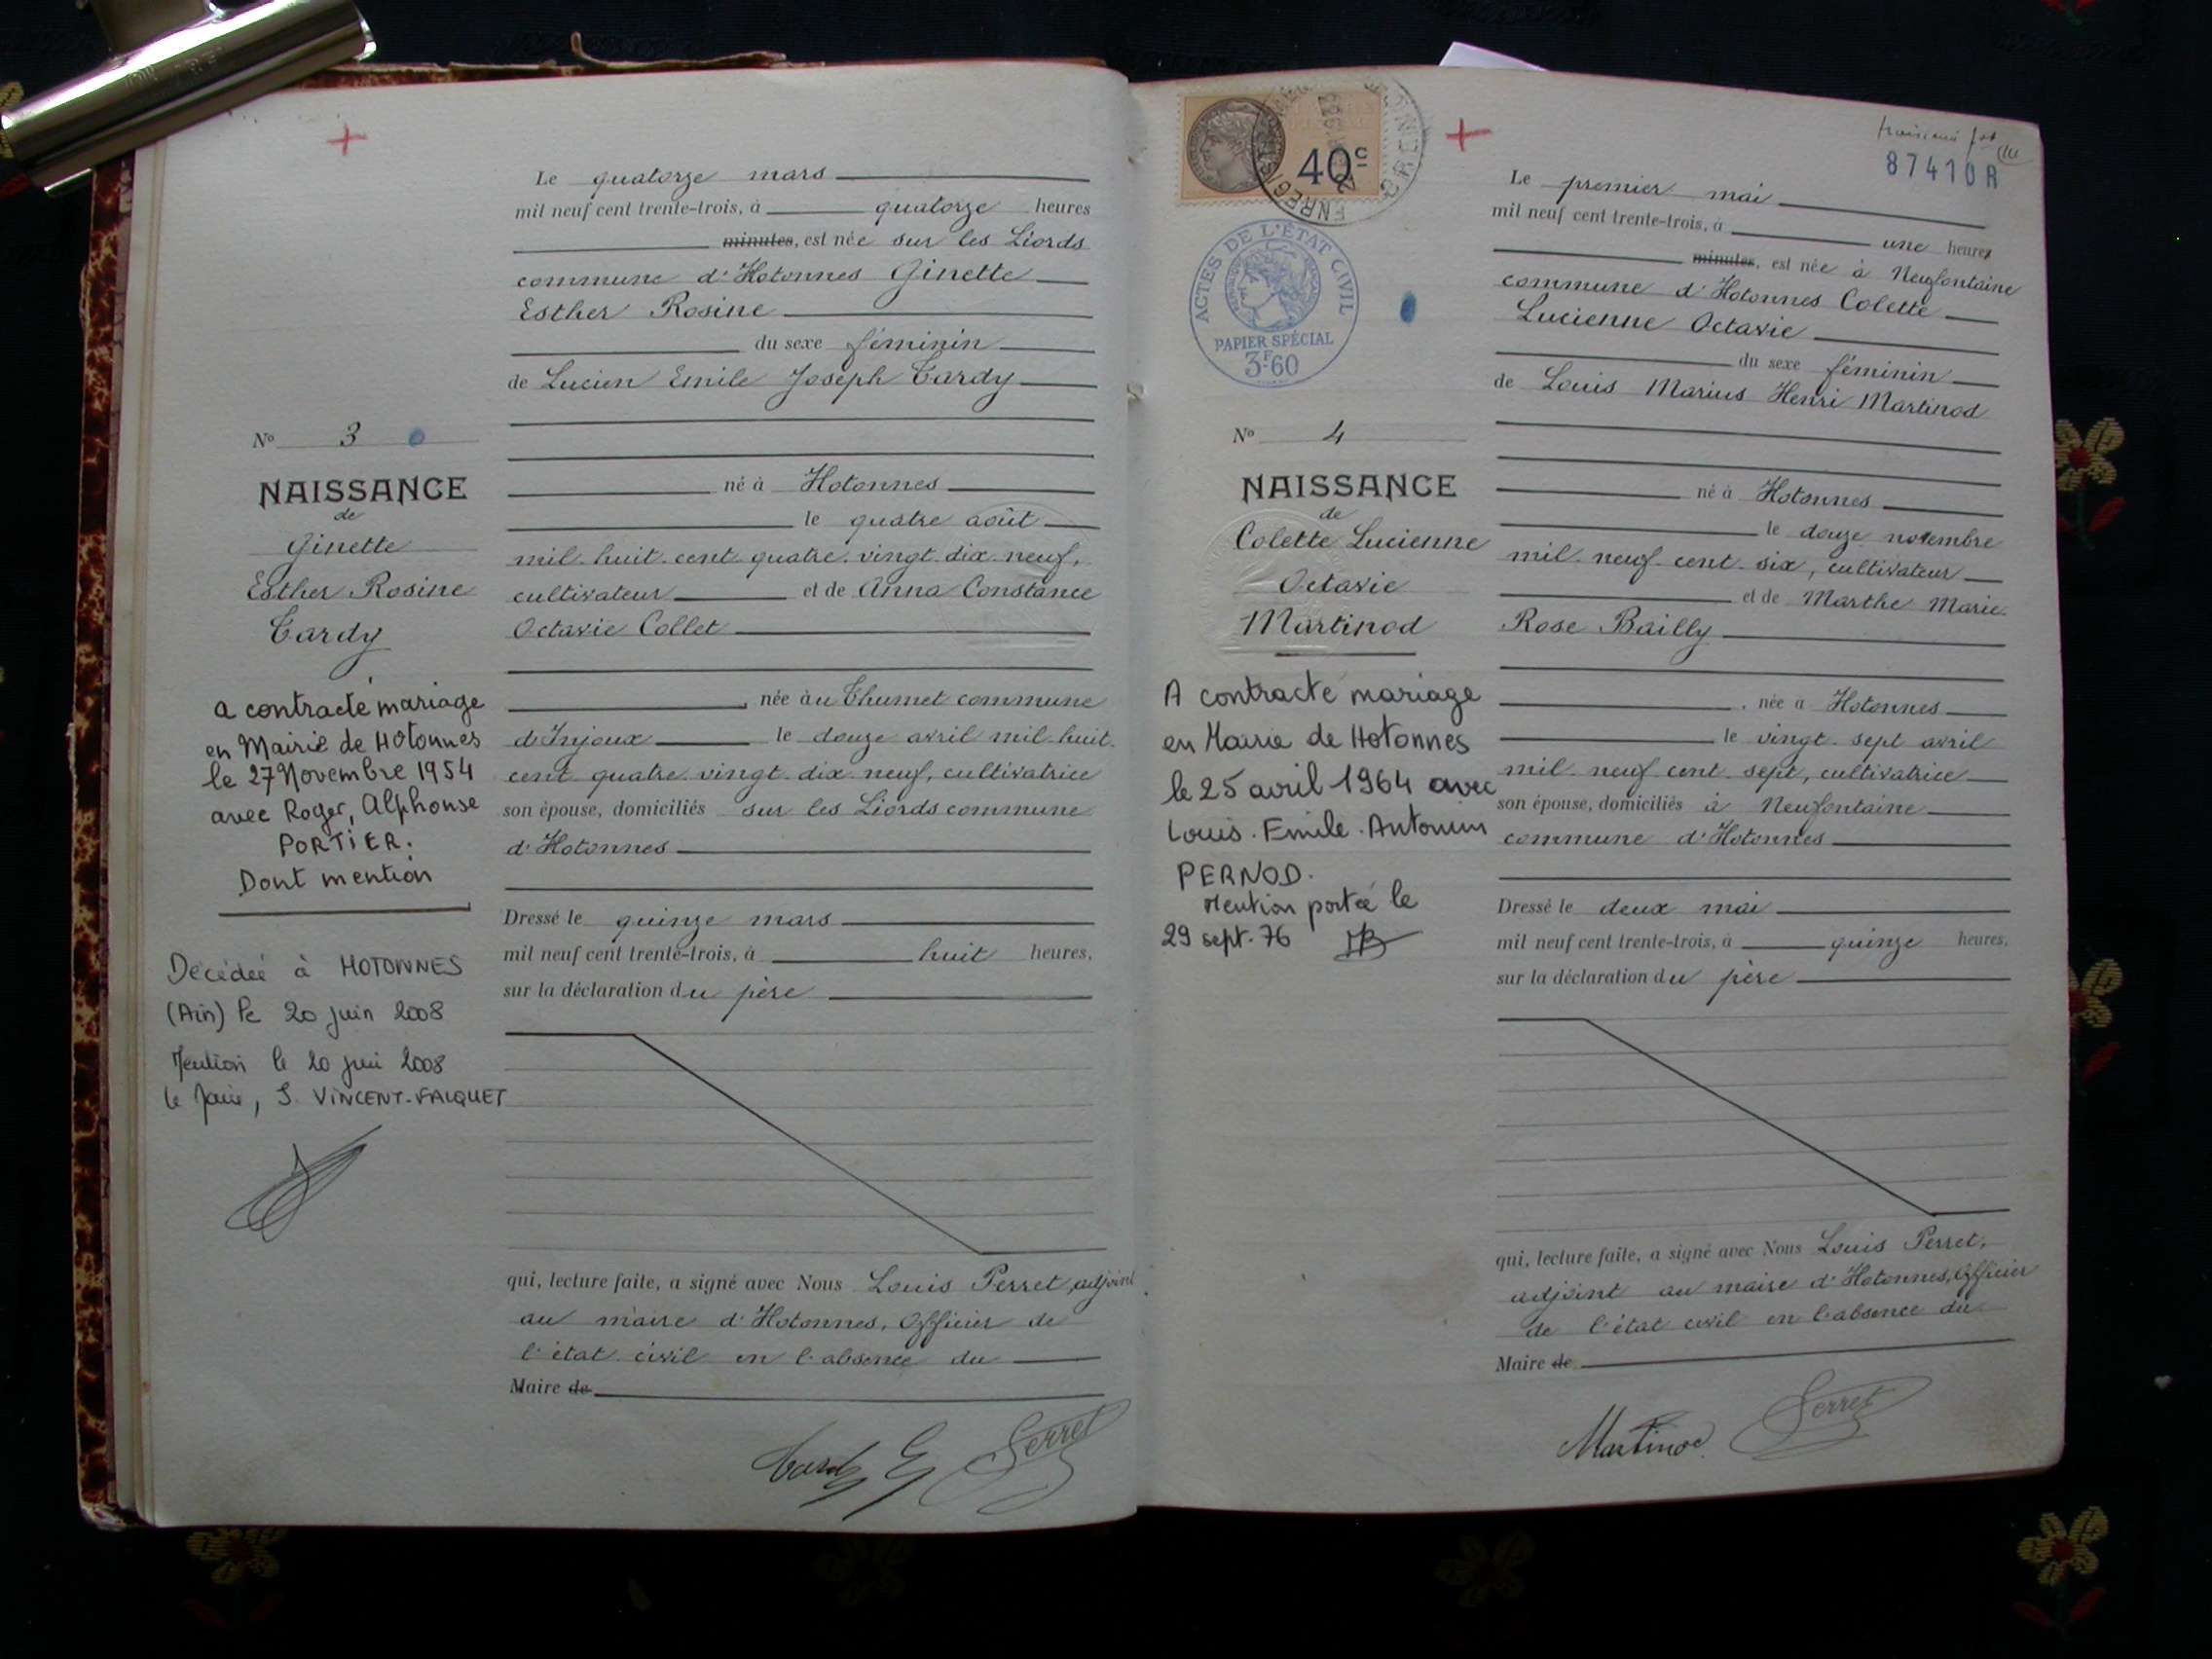 Le quatorze mars
mil neuf cent trente-trois, à quatorze heures
minutes, est née sur les Liords
commune d'Hotonnes Ginette
Esther Rosine
du sexe féminin
de Lucien Emile Joseph Tardy
né à Hotonnes
le quatre août
mil huit cent quatre vingt dix neuf,
cultivateur et de Anna Constance
Octavie Collet
née au Thumet commune
d'Injoux le douze avril mil huit
cent quatre vingt dix neuf, cultivatrice
son épouse, domiciliés sur les Liords commune
d'Hotonnes
Dressé le quinze mars
mil neuf cent trente-trois, à huit heures,
sur la déclaration du père
qui, lecture faite, a signé avec Nous Louis Perret, adjoint
au maire d'Hotonnes, Officier de
l'état civil en l'absence du
Maire de
Tardy Perret
No 3
NAISSANCE
de
Ginette
Esther Rosine
Tardy
a contracté mariage
en Mairie de HOTONNES
le 27 Novembre 1954
avec Roger, Alphonse
PORTIER.
Dont mention
Décédée à HOTONNES
(Ain) le 20 juin 2008
Mention le 20 juin 2008
le Maire, S. VINCENT-FALQUET
40c
ACTES DE L'ÉTAT CIVIL
PAPIER SPÉCIAL
3F60
87410R
Le premier mai
mil neuf cent trente-trois, à une heures
minutes, est née à Neufontaine
commune d'Hotonnes Colette
Lucienne Octavie
du sexe féminin
de Louis Marius Henri Martinod
né à Hotonnes
le douze novembre
mil neuf cent six, cultivateur
et de Marthe Marie
Rose Bailly
née à Hotonnes
le vingt sept avril
mil neuf cent sept, cultivatrice
son épouse, domiciliés à Neufontaine
commune d'Hotonnes
Dressé le deux mai
mil neuf cent trente-trois, à quinze heures,
sur la déclaration du père
qui, lecture faite, a signé avec Nous Louis Perret,
adjoint au maire d'Hotonnes, Officier
de l'état civil en l'absence du
Maire de
Martinod Perret
No 4
NAISSANCE
de
Colette Lucienne
Octavie
Martinod
A contracté mariage
en Mairie de Hotonnes
le 25 avril 1964 avec
Louis. Emile. Antonin
PERNOD.
Mention portée le
29 sept. 76